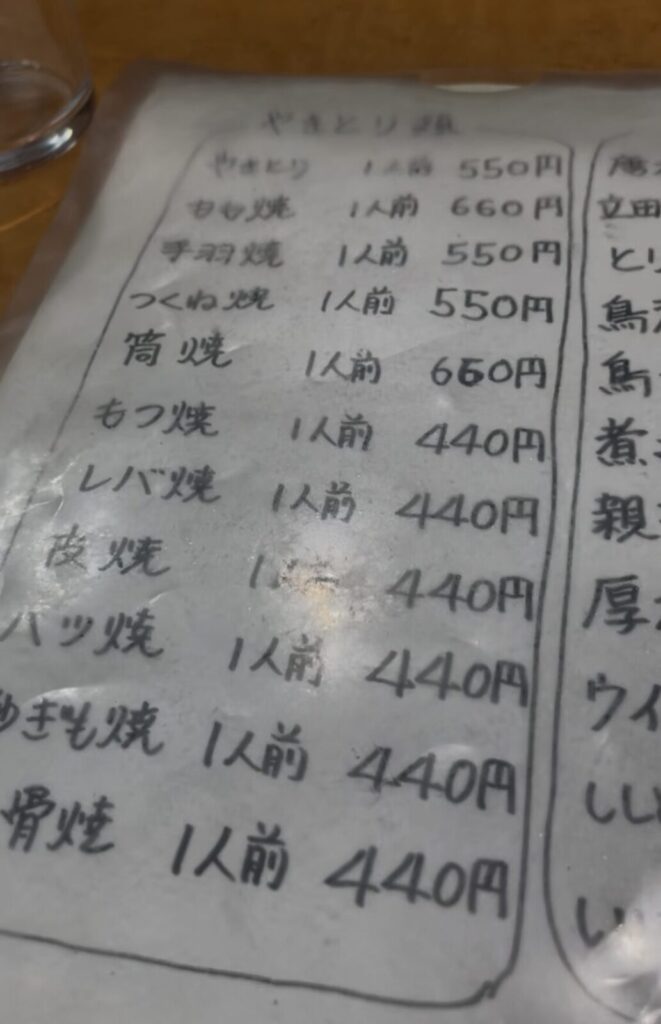 やきとり類
やきとり 1人前 550円
もも焼 1人前 660円
手羽焼 1人前 550円
つくね焼 1人前 550円
筒焼 1人前 660円
もつ焼 1人前 440円
レバ焼 1人前 440円
皮焼 1人前 440円
ハツ焼 1人前 440円
ぎも焼 1人前 440円
骨焼 1人前 440円
立田
とり
鳥
鳥
煮
親
厚
ウイ
しし